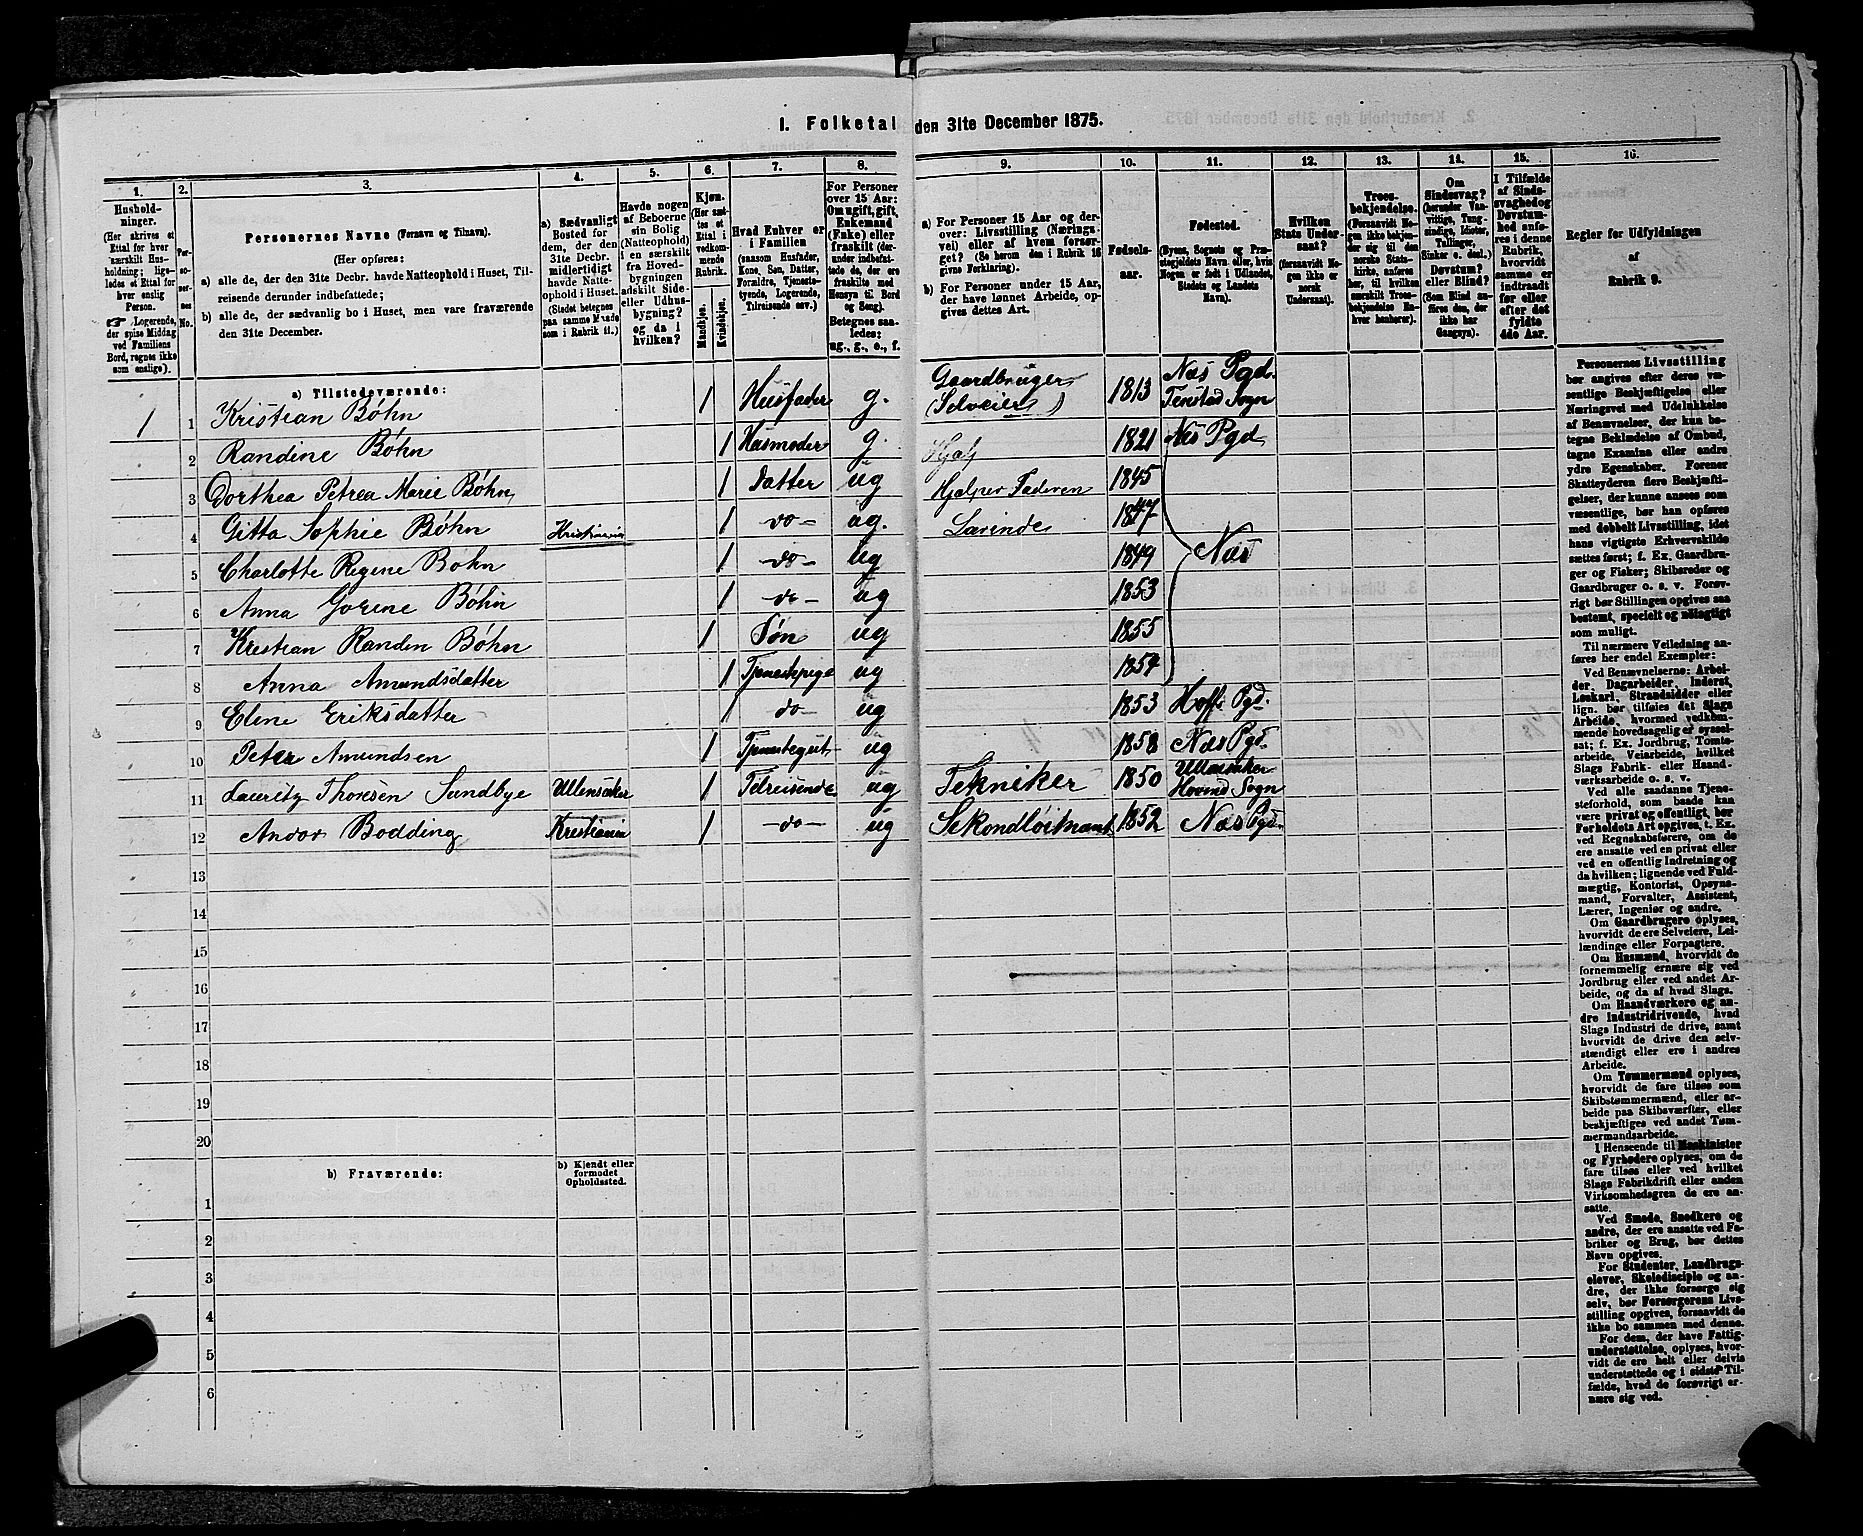 I. Folketal den 31te December 1875.
1. 2. 3. 4. 5. 6. 7. 8. 9. 10. 11. 12. 13. 14. 15. 16.
Husholdninger.
(Her skrives et
Ettal for hver
særskilt Husholdning; ligeledes
et Ettal for
hver enslig
Person.
☞ Logerende,
der spise Middag
ved Familiens
Bord, regnes ikke
som enslige).
Personernes No.
Personernes Navne (Fornavn og Tilnavn).
(Her opføres:
a) alle de, der den 31te Decbr. havde Natteophold i Huset, Tilreisende
derunder indbefattede;
b) alle de, der sædvanlig bo i Huset, men vare fraværende
den 31te December.
a) Sædvanligt
Bosted for
dem, der den
31te Decbr.
midlertidigt
havde Natteophold
i Huset.
(Stedet betegnes
paa samme Maade
som i Rubrik 11.)
Havde nogen
af Beboerne
sin Bolig
(Natteophold)
i en særskilt
fra Hovedbygningen
adskilt Side-
eller Udhusbygning?
og da i
hvilken?
Kjøn.
(Her sættes
et
Ettal i
vedkommende
Rubrik.
Mandkjøn.
Kvindekjøn.
Hvad Enhver er
i Familien
(saasom Husfader,
Kone, Søn, Datter,
Forældre, Tjenestetyende,
Logerende,
Tilreisende osv.)
For Personer
over 15 Aar:
Om ugift, gift,
Enkemand
(Enke) eller
fraskilt (derunder
indbefattede
de, der ere
fraskilte med
Hensyn til Bord
og Seng).
Betegnes saaledes:
ug., g., e., f.
a) For Personer 15 Aar og derover:
Livsstilling (Næringsvei)
eller af hvem forsørget?
(Se herom den i Rubrik 16
givne Forklaring).
b) For Personer under 15 Aar,
der have lønnet Arbeide, opgives
dettes Art.
Fødselsaar.
Fødested.
(Byens, Sognets og Præstegjeldets
Navn eller, hvis
Nogen er født i Udlandet,
Stedets og Landets
Navn).
Hvilken
Stats Undersaat?
(forsaavidt Nogen
ikke er
norsk
Undersaat).
Troesbekjendelse.
(Forsaavidt Nogen
ikke bekjender
sig til den
norske Statskirke,
anføres
her, til hvilken
særskilt Troesbekjendelse
Enhver
henhører).
Om
Sindssvag?
(herunder Vanvittige,
Tungsindige,
Idioter,
Tullinger,
Sinker o. desl.)
Døvstum?
eller Blind?
(Som Blind anføres
den, der
ikke har
Gangsyn).
I Tilfælde
af Sindssvaghed
og
Døvstumhed
anføres
i denne
Rubrik,
hvorvidt
samme er
indtraadt
før eller
efter det
fyldte
4de Aar.
Regler for Udfyldningen
af
Rubrik 9.
a) Tilstedeværende:
1 1 Kristian Bøhn 1 Husfader g. Gaardbruger (Selveier) 1813 Næs Pgd. Sogn
2 Randine Bøhn 1 Husmoder g. 1821 Næs Pgd
3 Dorthea Petrea Marie Bøhn 1 Datter ug Hjelper Faderen 1845
4 Gitta Sophie Bøhn Kristiania 1 do ug. 1847
5 Charlotte Regine Bøhn 1 do ug 1849 Næs
6 Anna Bøhn 1 do ug 1853
7 Kristian Randin Bøhn 1 Søn ug 1855
8 Anna Amundsdatter 1 Tjenestepige ug
9 Eline Eriksdatter 1 do ug 1853 Hoffs Pgd.
10 Peter Amundsen 1 Tjenestegut ug 1858 Næs Pgd.
11 Lauritz Thoresen Sundbye Ullensaker 1 Tilreisende ug Tekniker 1850 Ullensaker Hovind Sogn
12 Andor Bodding Kristiania 1 do ug Sekondløitnant 1852 Næs Pgd.
13
14
15
16
17
18
19
20
b) Fraværende:
b) Kjendt eller
formodet
Opholdssted.
1
2
3
4
5
6
Personernes Livsstilling
bør angives efter deres væsentlige
Beskjæftigelse eller
Næringsvei med Udelukkelse
af Benævnelser, der kun betegne
Beklædelse af Ombud,
tagne Examina eller andre
ydre Egenskaber. Forener
Skatteyderen flere Beskjæftigelser,
der kunne ansees som
væsentlige, bør han opføres
med dobbelt Livsstilling, idet
hans vigtigste Erhvervskilde
sættes først; f. Ex. Gaardbruger
og Fisker; Skibsreder og
Gaardbruger o. s. v. Forøvrigt
bør Stillingen opgives saa
bestemt, specielt og nøiagtigt
som muligt.
Til nærmere Veiledning anføres
her endel Exempler:
Ved Benævnelserne: Arbeider,
Dagarbeider, Inderst,
Løskarl, Strandsidder eller
lign. bør tilføies det Slags
Arbeide, hvormed vedkommende
hovedsagelig er sysselsat;
f. Ex. Jordbrug, Tomtearbeide,
Veiarbeide, hvilket
Slags Fabrik- eller Haandværksarbeide
o. s. v.
Ved alle saadanne Tjenesteforhold,
som baade kan
være privat og offentligt, bør
Forholdets Art opgives, f. Ex.
ved Regnskabsførere, om de
ere ansatte ved en privat eller
ved en offentlig Indretning og
da hvilken; lignende ved Fuldmægtig,
Kontorist, Opsynsmand,
Forvalter, Assistent,
Lærer, Ingeniør og andre.
Om Gaardbrugere oplyses,
hvorvidt de ere Selveiere, Leilændinge
eller Forpagtere.
Om Husmænd, hvorvidt de
fornemmelig ernære sig ved
Jordbrug eller ved andet Arbeide,
og da af hvad Slags.
Om Haandværkere og andre
Industridrivende, hvad
Slags Industri de drive, samt
hvorvidt de drive den selvstændigt
eller ere i andres
Arbeide.
Om Tømmermænd oplyses,
hvorvidt de fare tilsøs som
Skibstømmermænd, eller arbeide
paa Skibsværfter, eller
beskjæftiges ved andet Tømmermandsarbeide.
I Henseende til Maskinister
og Fyrbødere oplyses, om de
fare tilsøs eller ved hvilket
Slags Fabrikdrift eller anden
Virksomhedsgren de ere ansatte.
Ved Smede, Snedkere og
andre, der ere ansatte ved Fabriker
og Brug, bør dettes
Navn opgives.
For Studenter, Landbrugselever,
Skoledisciple og andre,
der ikke forsørge sig
selv, bør Forsørgerens Livsstilling
opgives, forsaavidt de
ikke bo sammen med denne.
For dem, der have Fattigunderstøttelse,
oplyses, hvorvidt
de ere helt eller delvis
understøttede og i sidste Tilfælde,
hvad de forøvrigt ernære
sig ved.